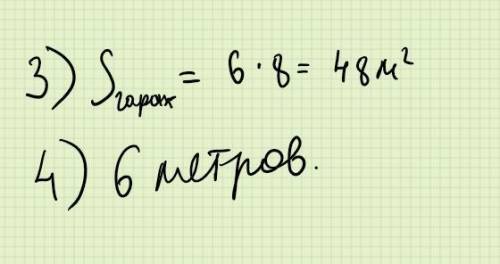 3) Sгараж = 6 · 8 = 48 м²
4) 6 метров.